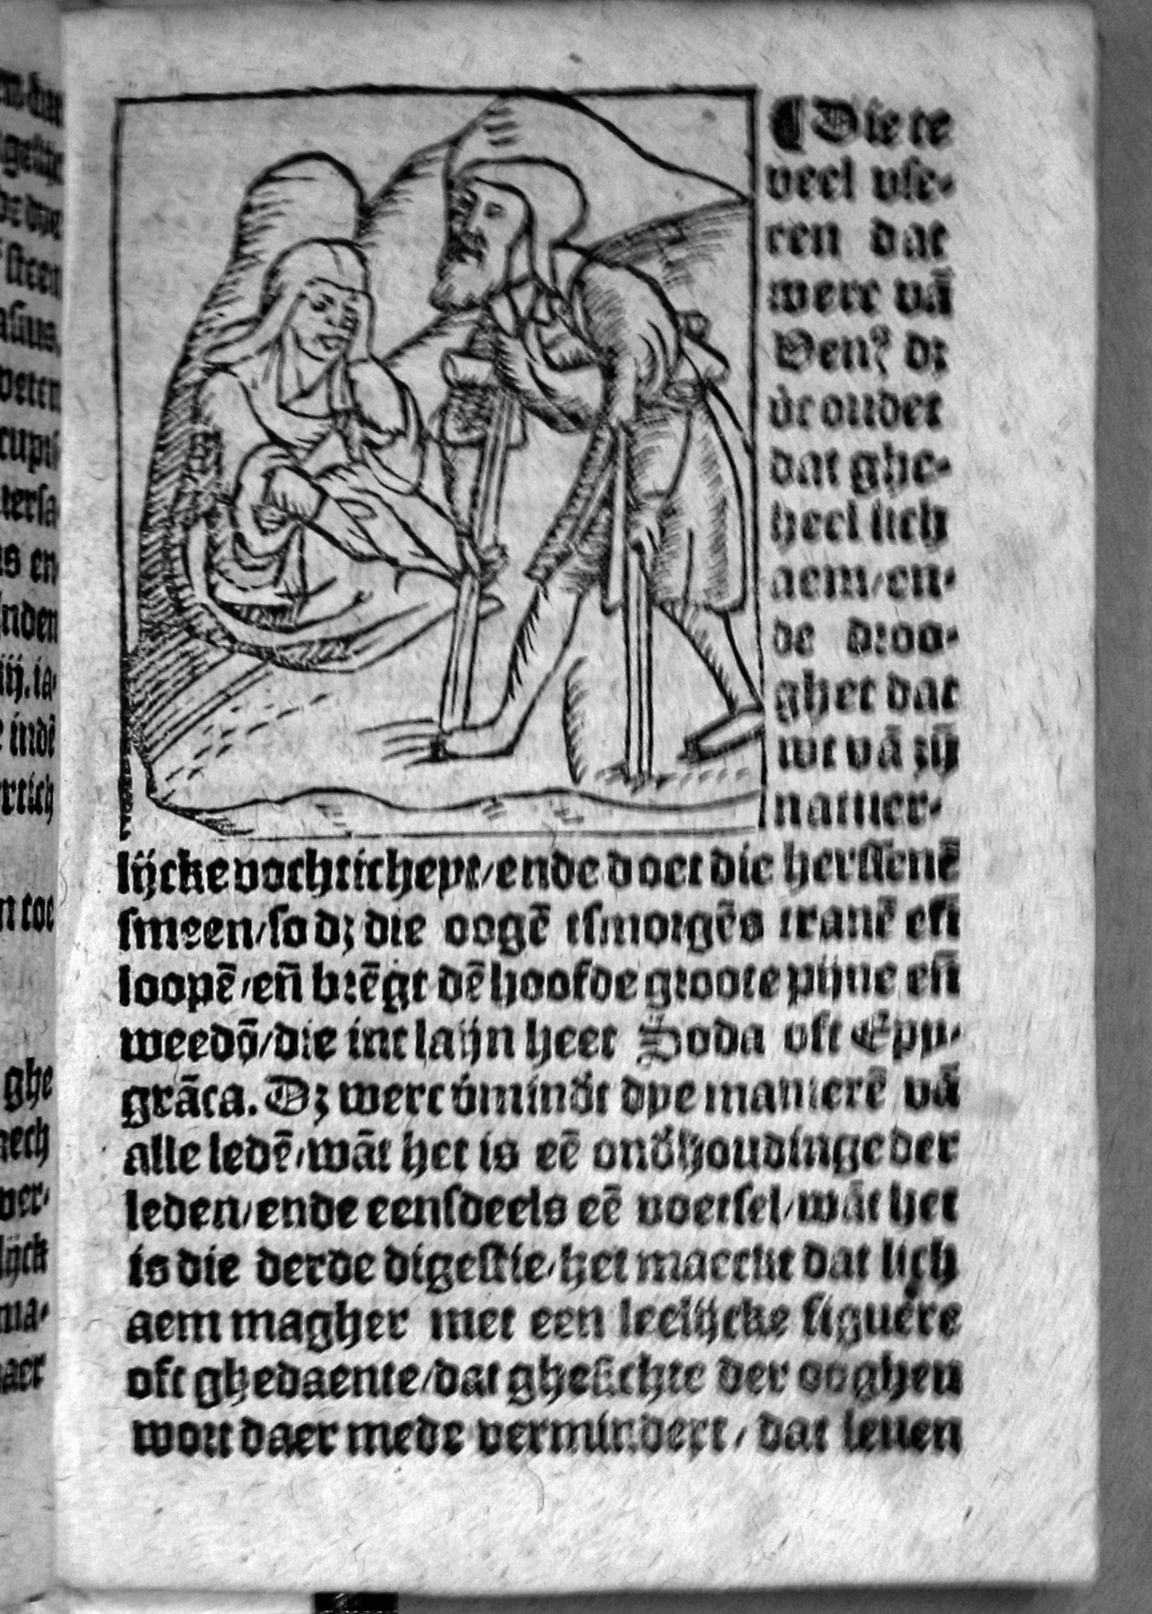 ¶ Die te
veel vse-
ren dat
werc vā
Ven⁹ dz
d̓ oudet
dat ghe-
heel lich
aem/en-
de droo-
ghet dat
wt vā zijn
natuer-
lijcke vochticheyt/ende doet die herssenē
smeen/so dz die oogē tsmorgēs tranē en̄
loopē/en̄ brēgt dē hoofde groote pijne en̄
weedō/die int latijn heet Soda oft Epy-
grāca. Dz werc v̓mind̓t dye manierē vā
alle ledē/wāt het is eē ond̓houdinge der
leden/ende eensdeels eē voetsel/wāt het
is die derde digestie/het maeckt dat lich
aem magher met een leelijcke figuere
oft ghedaente/dat ghesichte der ooghen
wort daer mede vermindert/dat leuen
ghe
ver-
lijck
ma-
aer
n toe
nden